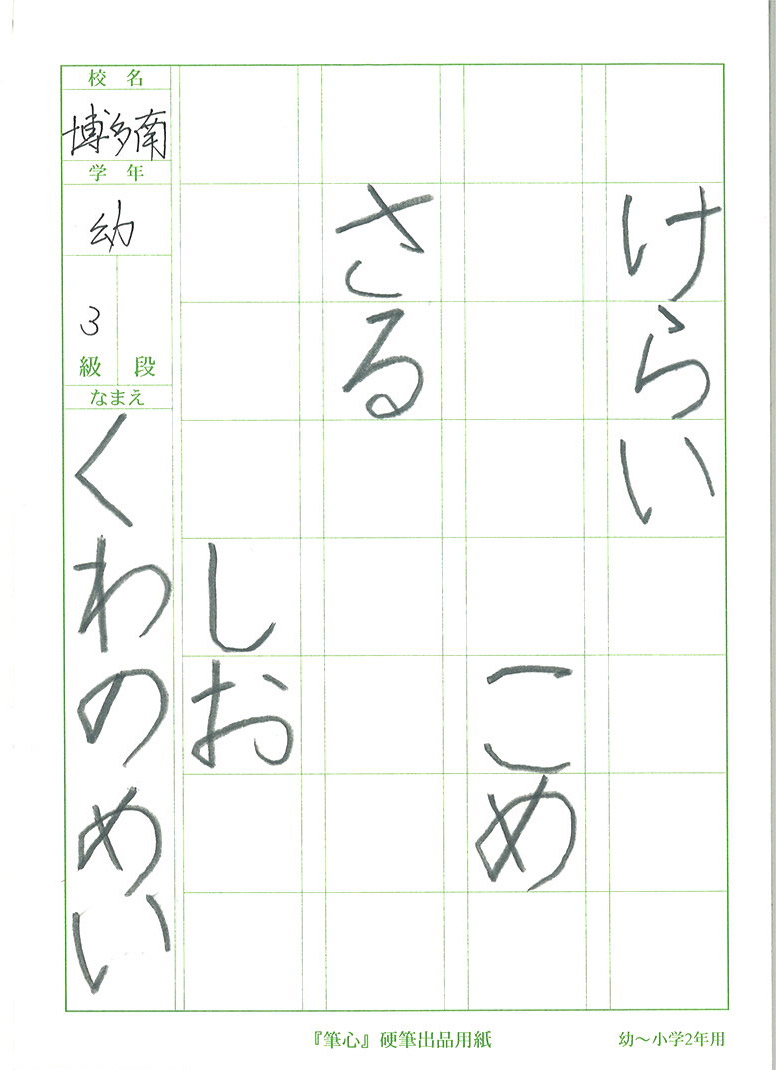 けらい
こめ
さる
しお
校名
博多南
学年
幼
3
級 段
なまえ
くわのめい
『筆心』硬筆出品用紙
幼〜小学2年用